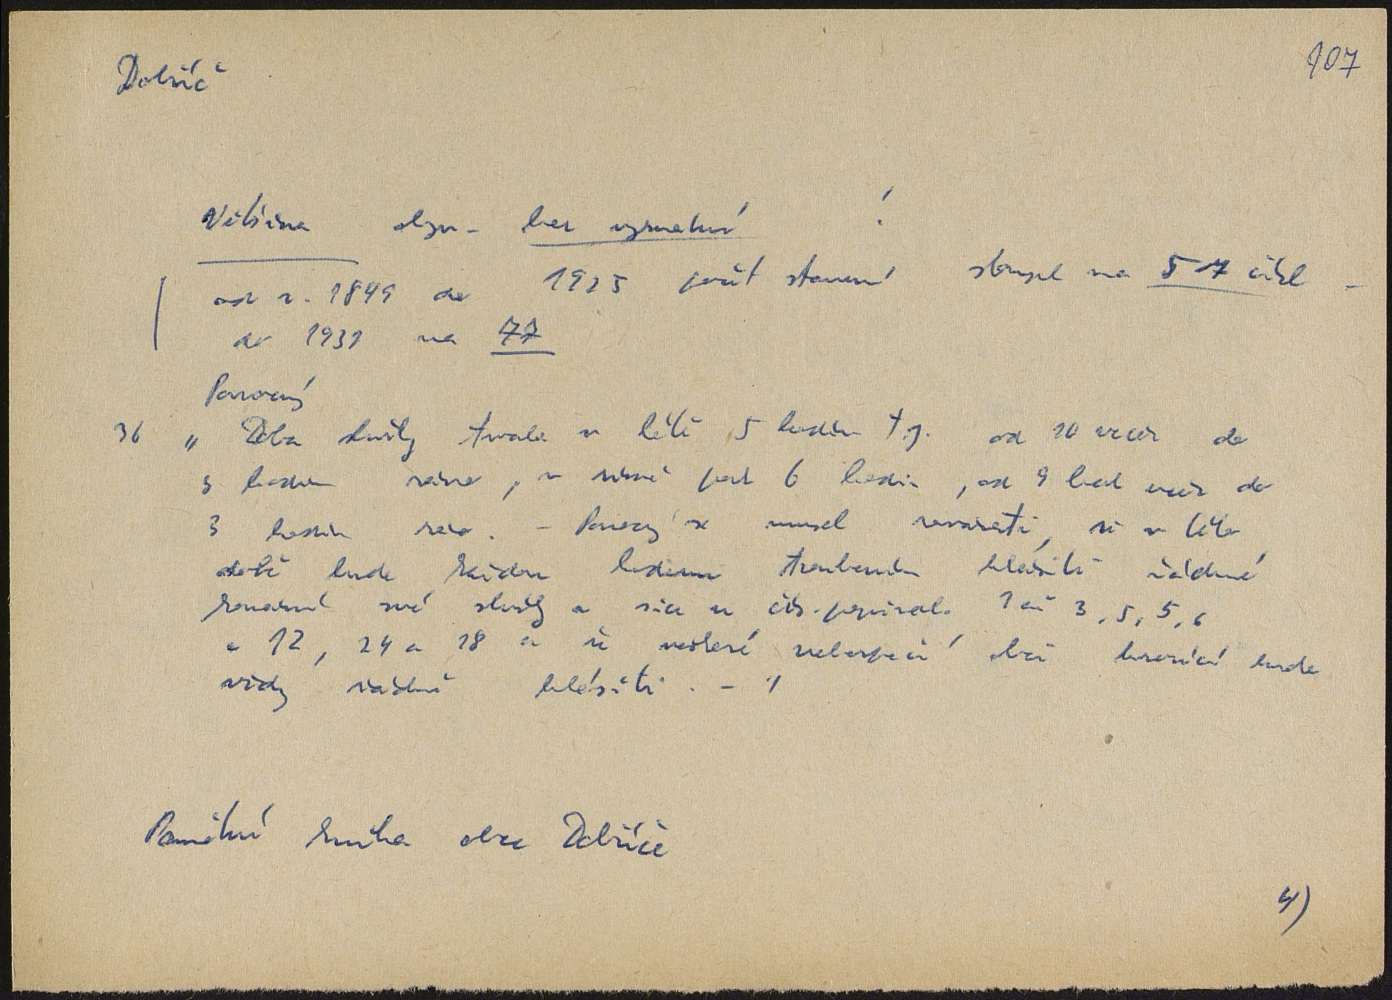 Dobříč
107
Většina obyv. bez vyznání !
od r. 1849 do 1925 počet stavení stoupl na 57 čísel -
do 1931 na 77
Ponocný
36 „Doba služby trvala v létě 5 hodin t.j. od 10 večer do
3 hodin ráno, v zimě pak 6 hodin, od 9 hod večer do
3 hodin ráno. - Ponocný se musel zavázati, že v této
době bude každou hodinu troubením hlásiti řádně
konání své služby a sice u čís. 1 až 3, 5, 5, 6
a 12, 24 a 18 a že veškeré nebezpečí obci hrozící bude
vždy řádně hlásiti. - "
Pamětní kniha obce Dobříče
4)